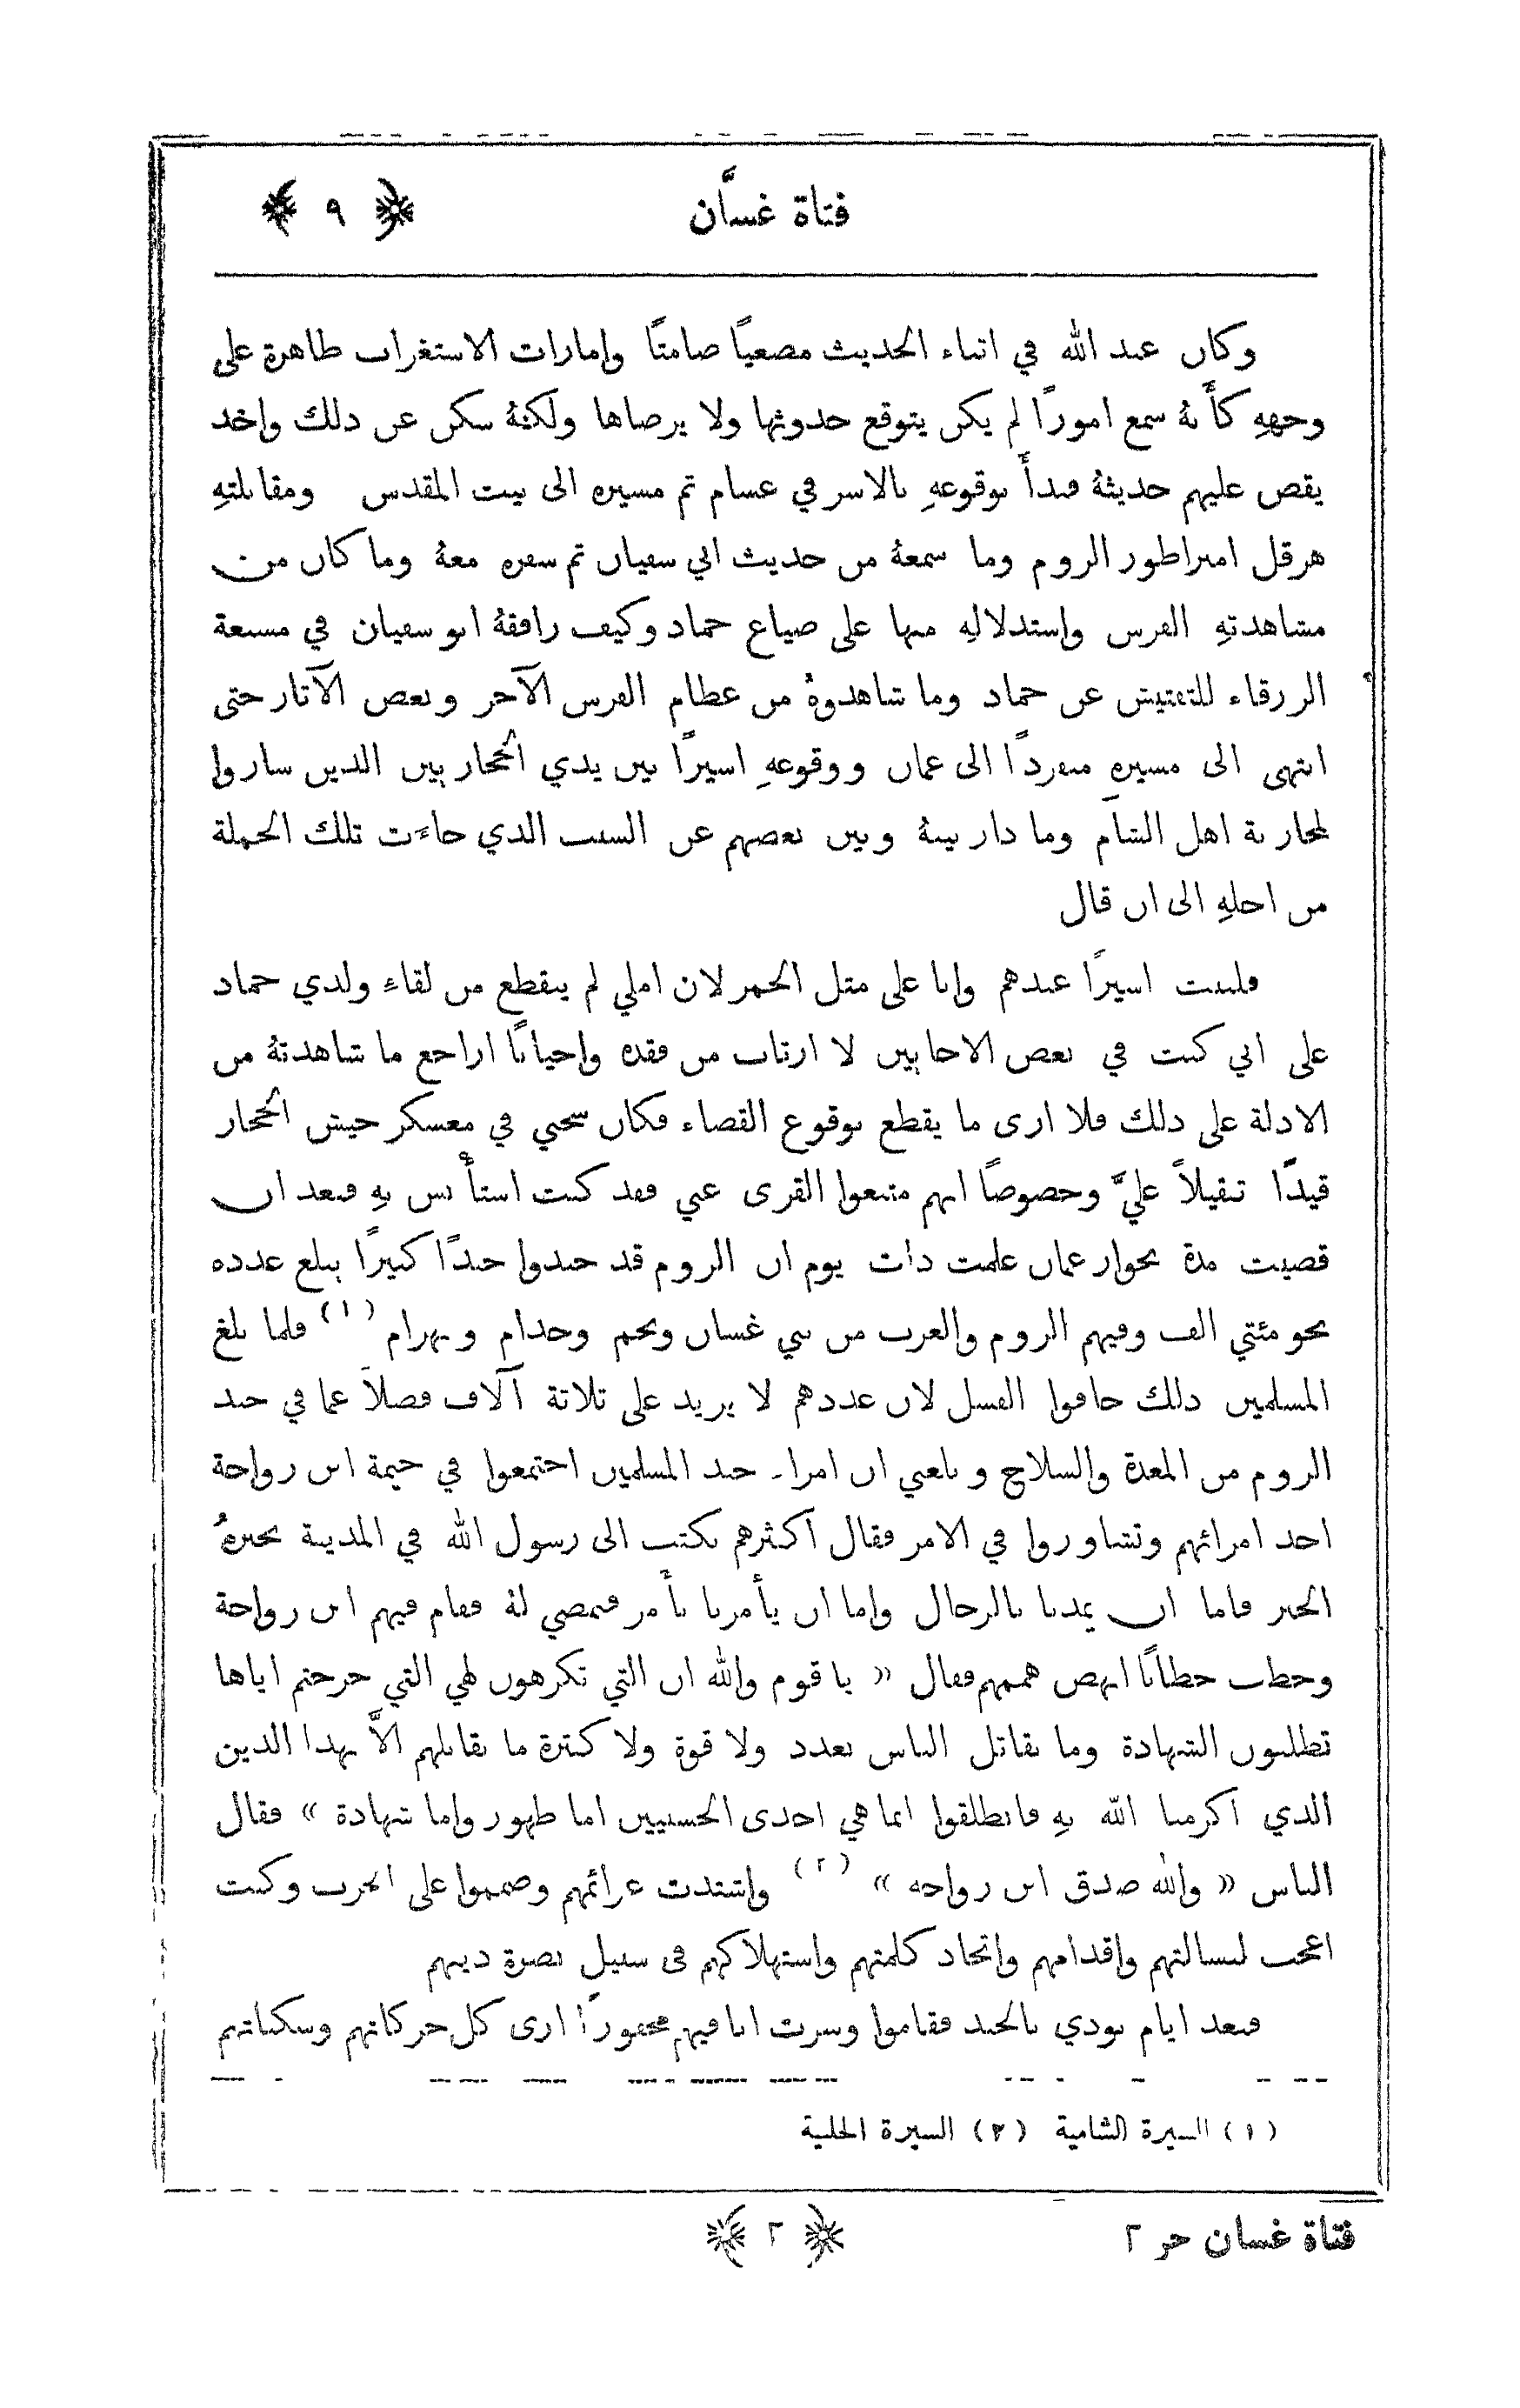 فتاة غسَّان ﴿ ٩ ﴾
وكان عبد الله في اثناء الحديث مصغيًا صامتًا وامارات الاستغراب ظاهرة على
وجههِ كأَنهُ سمع امورًا لم يكن يتوقع حدوثها ولا يرضاها ولكنهُ سكن عن ذلك واخذ
يقص عليهم حديثهُ فبدأَ بوقوعهِ بالاسر في غسام ثم مسيره الى بيت المقدس ومقابلتهِ
هرقل امبراطور الروم وما سمعهُ من حديث ابي سفيان ثم سفره معهُ وما كان من
مشاهدتهِ الفرس واستدلالهِ منها على ضياع حماد وكيف رافقهُ ابو سفيان في مسبعة
الزرقاء للتفتيش عن حماد وما شاهدوهُ من عظام الفرس الآخر وبعض الآثار حتى
انتهى الى مسيرهِ منفردًا الى عمان ووقوعهِ اسيرًا بين يدي الحجاز بين الذين ساروا
لمحاربة اهل الشآم وما دار بينهُ وبين بعضهم عن السبب الذي جاءَت تلك الحملة
من اجلهِ الى ان قال
فلبثت اسيرًا عندهم وانا على مثل الجمر لان املي لم ينقطع من لقاءِ ولدي حماد
على اني كنت في بعض الاحايين لا ارتاب من فقده واحيانًا اراجع ما شاهدتهُ من
الادلة على ذلك فلا ارى ما يقطع بوقوع القضاء فكان سجني في معسكر جيش الحجاز
قيدًا ثقيلاً عليَّ وخصوصًا انهم منعوا القرى عني فقد كنت استأْنس بهِ فبعد ان
قضيت مدة بجوار عمان علمت ذات يوم ان الروم قد جندوا جندًا كبيرًا يبلغ عدده
نحو مئتي الف وفيهم الروم والعرب من بني غسان ولخم وجذام وبهرام (١) فلما بلغ
المسلمين ذلك خافوا الفشل لان عددهم لا يزيد على ثلاثة آلاف فضلاً عما في جند
الروم من المعدة والسلاح وبلغني ان امراء جند المسلمين اجتمعوا في خيمة ابن رواحة
احد امرائهم وتشاوروا في الامر فقال اكثرهم نكتب الى رسول الله في المدينة نخبرهُ
الخبر فاما ان يمدنا بالرجال واما ان يأْمرنا بأَمر فنمضي لهُ فقام فيهم ابن رواحة
وخطب خطابًا انهض هممهم فقال « يا قوم والله ان التي تكرهون لهي التي خرجتم اياها
تطلبون الشهادة وما نقاتل الناس بعدد ولا قوة ولا كثرة ما نقاتلهم الاَّ بهذا الدين
الذي اكرمنا الله بهِ فانطلقوا انما هي احدى الحسنيين اما ظهور واما شهادة » فقال
الناس « والله صدق ابن رواحه » (٢) واشتدت عزائمهم وصمموا على الحرب وكنت
اعجب لبسالتهم واقدامهم واتحاد كلمتهم واستهلاكهم في سبيل نصرة دينهم
فبعد ايام نودي بالجند فقاموا وسرت انا فيهم مخفورًا ارى كل حركاتهم وسكناتهم
(١) السيرة الشامية (٢) السيرة الحلبية
فتاة غسان جز ٢ ﴿ ٢ ﴾